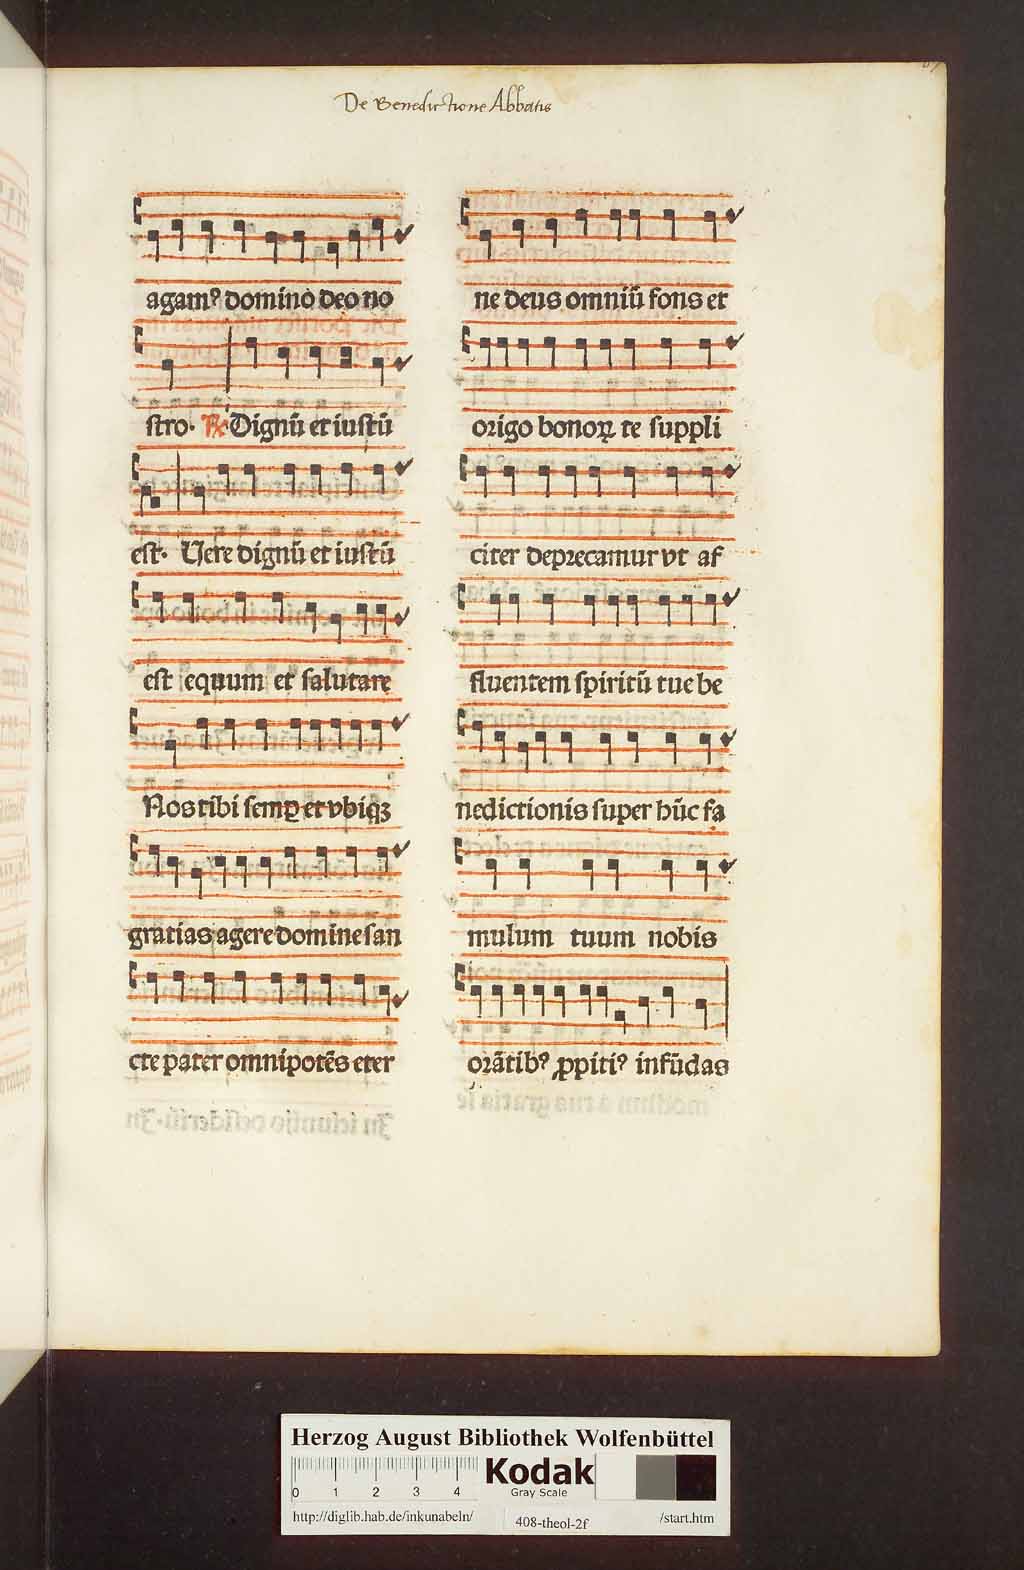 De Benedictione Abbatis
agam⁹ domino deo no
stro. ℟ Dignū et iustū
est. Uere dignū et iustū
est equum et salutare
Nos tibi semꝑ et vbiqꝫ
gratias agere domine san
cte pater omnipotēs eter
ne deus omniū fons et
origo bonoꝝ te suppli
citer deprecamur vt af
fluentem spiritū tue be
nedictionis super hūc fa
mulum tuum nobis
orātib⁹ ꝓpiti⁹ infūdas
Herzog August Bibliothek Wolfenbüttel
0 1 2 3 4
Kodak
Gray Scale
http://diglib.hab.de/inkunabeln/ 408-theol-2f /start.htm